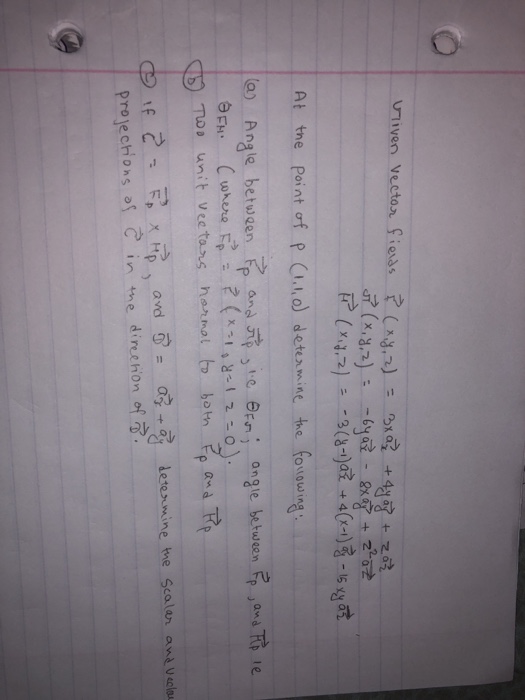 Given vector fields F⃗ (x,y,z) = 3xa⃗x + 4ya⃗y + za⃗z
G⃗ (x,y,z) = -6ya⃗x - 8xa⃗y + z²a⃗z
H⃗ (x,y,z) = -3(y-1)a⃗x + 4(x-1)a⃗y - 16xya⃗z
At the point of P (1,1,0) determine the following:
(a) Angle between F⃗p and G⃗p, i.e θFG; angle between F⃗p, and H⃗p ie
θFH. (where F⃗p = F⃗ (x=1, y=1 z=0).
(b) Two unit vectors normal to both F⃗p and H⃗p
(c) if C⃗ = F⃗p x H⃗p, and D⃗ = a⃗x + a⃗y determine the scalar and vector
projections of C⃗ in the direction of D⃗.